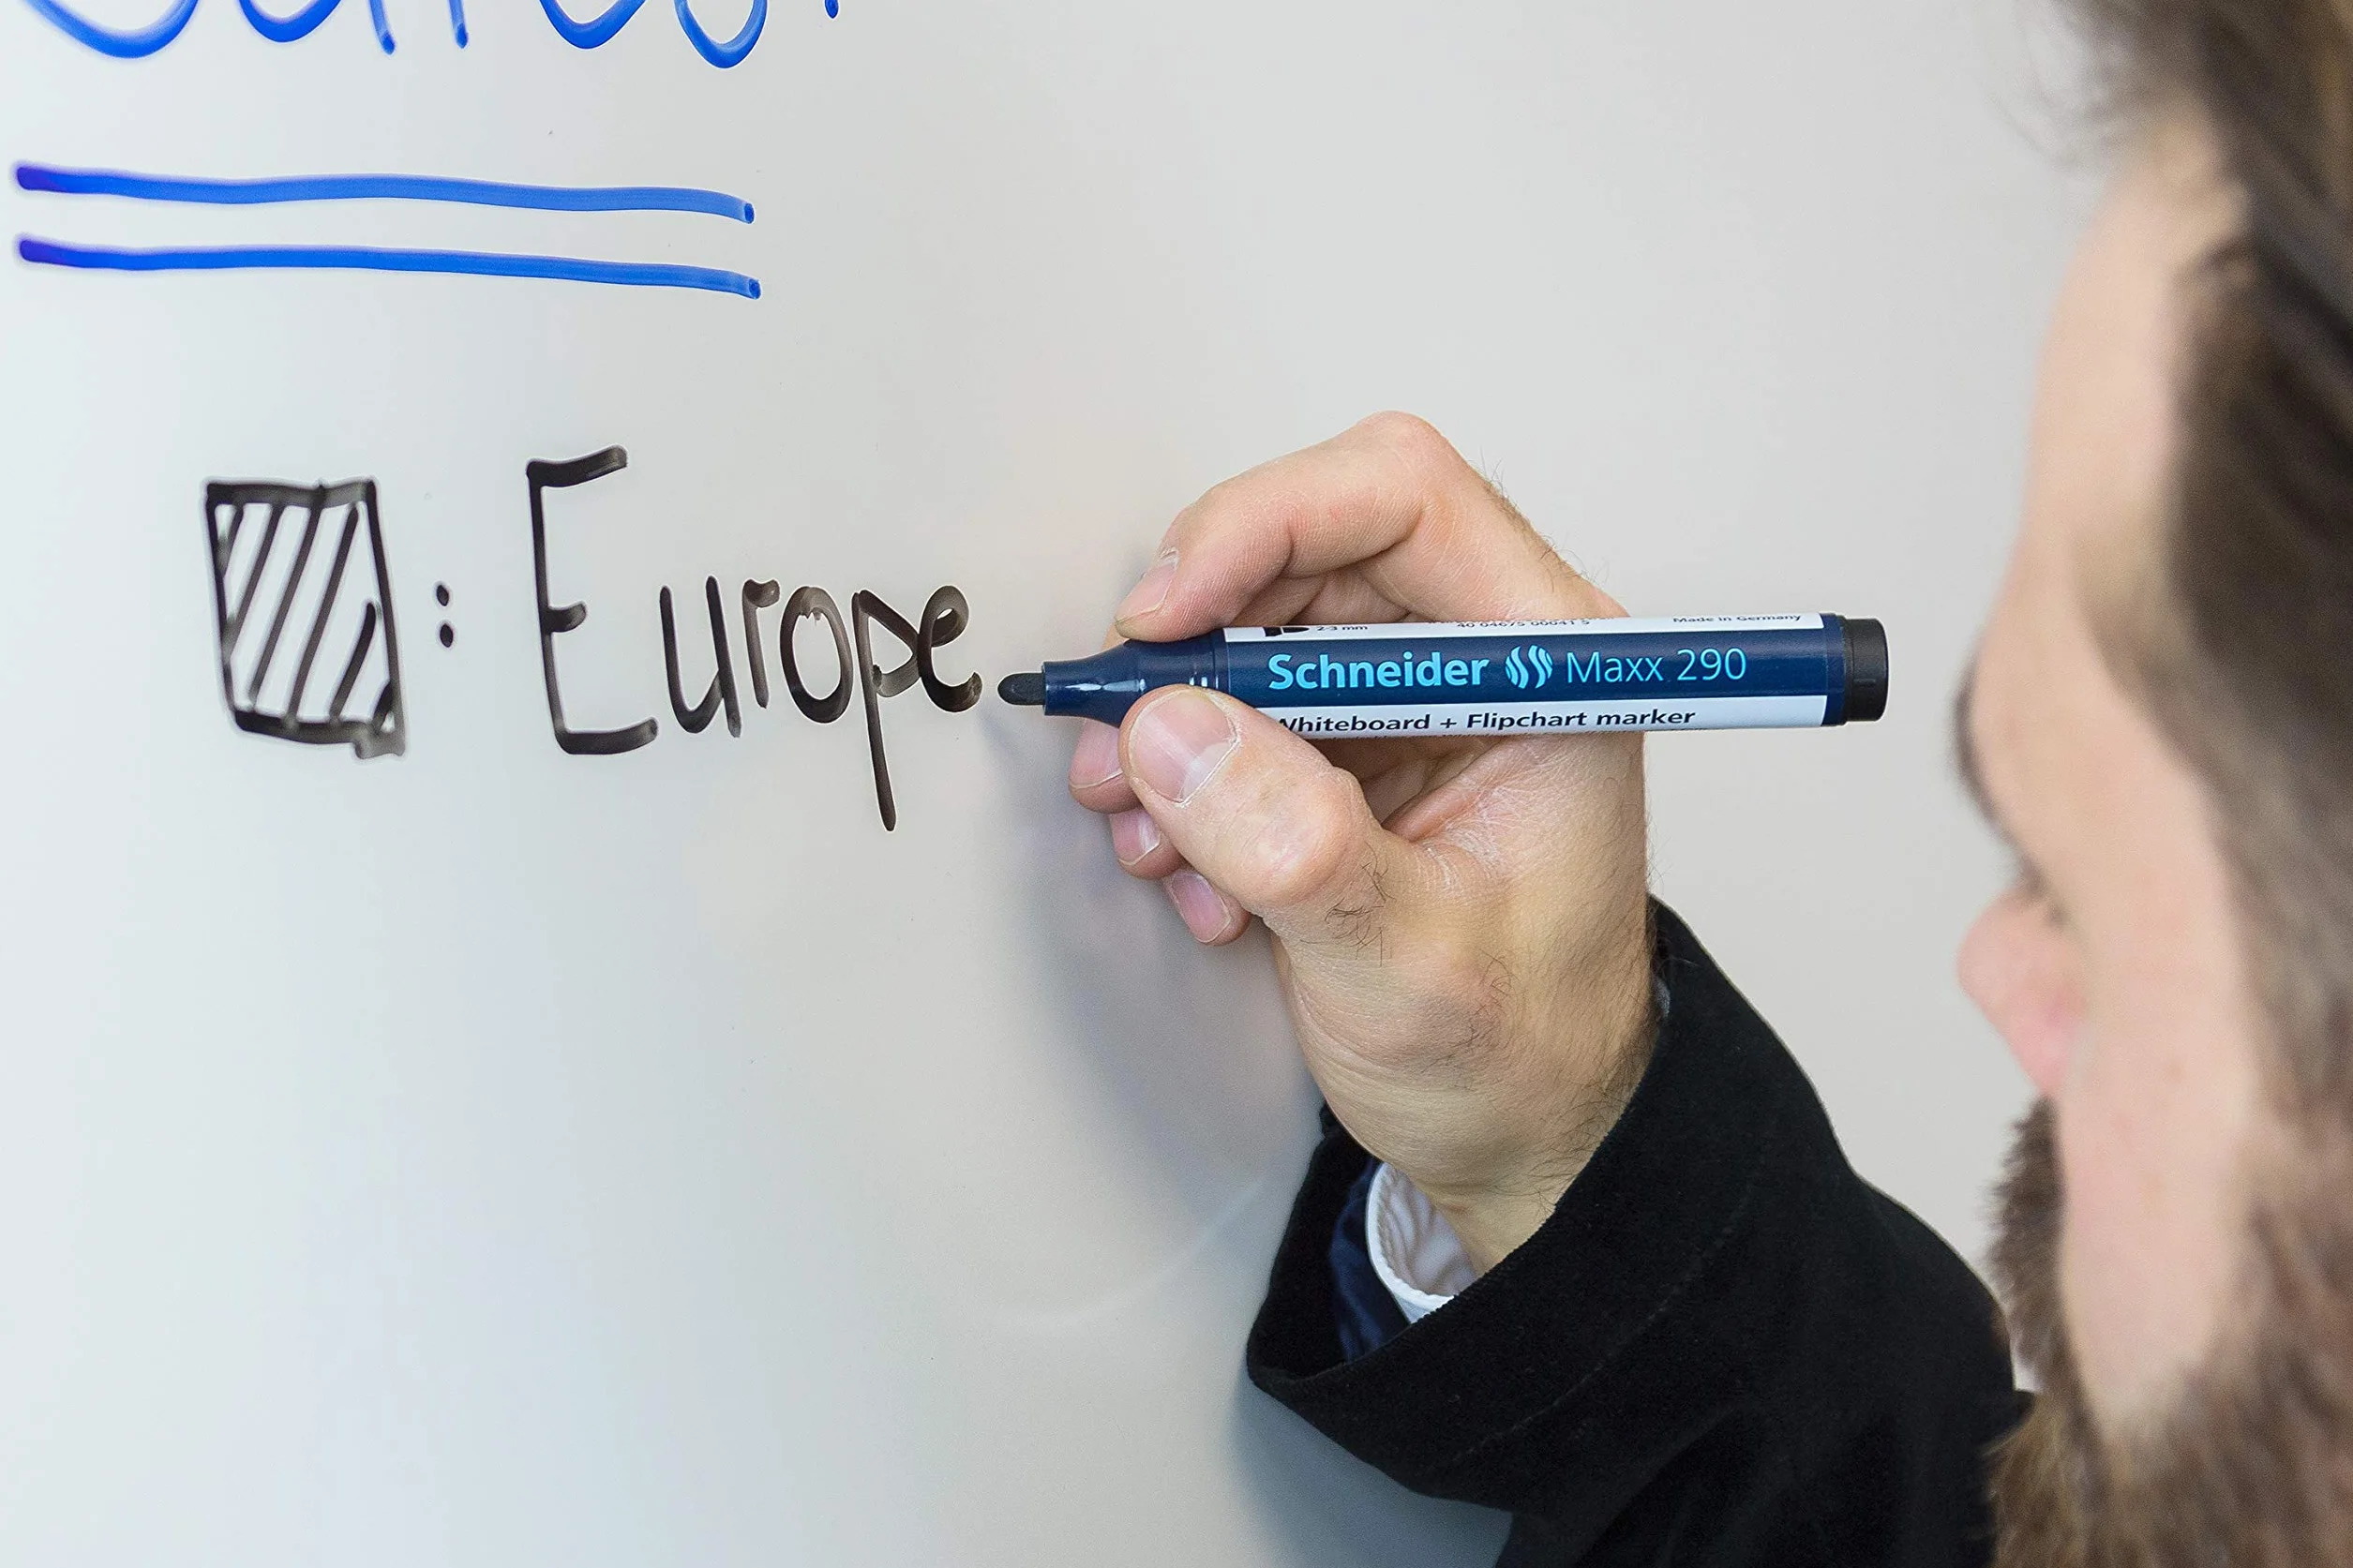 : Europe
2-3 mm
Made in Germany
Schneider Maxx 290
Whiteboard + Flipchart marker